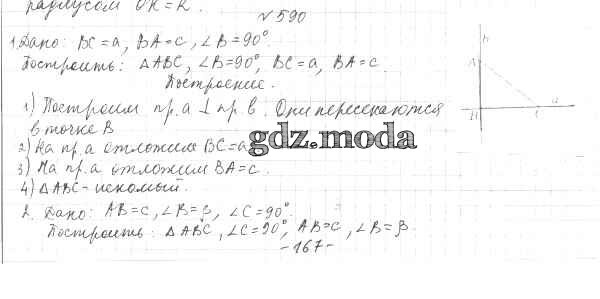 радиусом OK = R.
№ 590
1. Дано: BC = a, BA = c, ∠B = 90°.
Построить: △ABC, ∠B = 90°, BC = a, BA = c.
Построение.
1) Построим пр. a ⊥ пр. b. Они пересекаются
в точке B
2) На пр. a отложим BC = a
gdz.moda
3) На пр. a отложим BA = c.
4) △ABC - искомый.
2. Дано: AB = c, ∠B = β, ∠C = 90°.
Построить: △ABC, ∠C = 90°, AB = c, ∠B = β.
- 167 -
A
a